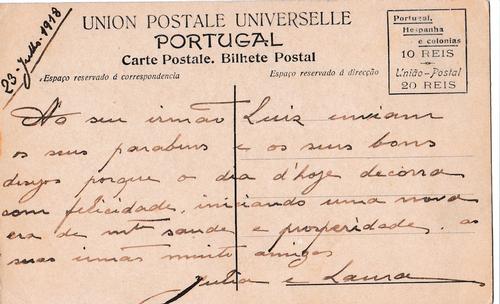 23 Julho 1918
UNION POSTALE UNIVERSELLE
PORTUGAL
Carte Postale. Bilhete Postal
Espaço reservado á correspondencia
Espaço reservado á direcção
Portugal,
Hespanha
e colonias
10 REIS
União-Postal
20 REIS
Ao seu irmão Luiz enviam
os seus parabens e os seus bons
desejos porque o dia d'hoje decorra
com felicidade, iniciando uma nova
era de mta saude e prosperidade, as
suas irmãs muito amigas
Julia e Laura